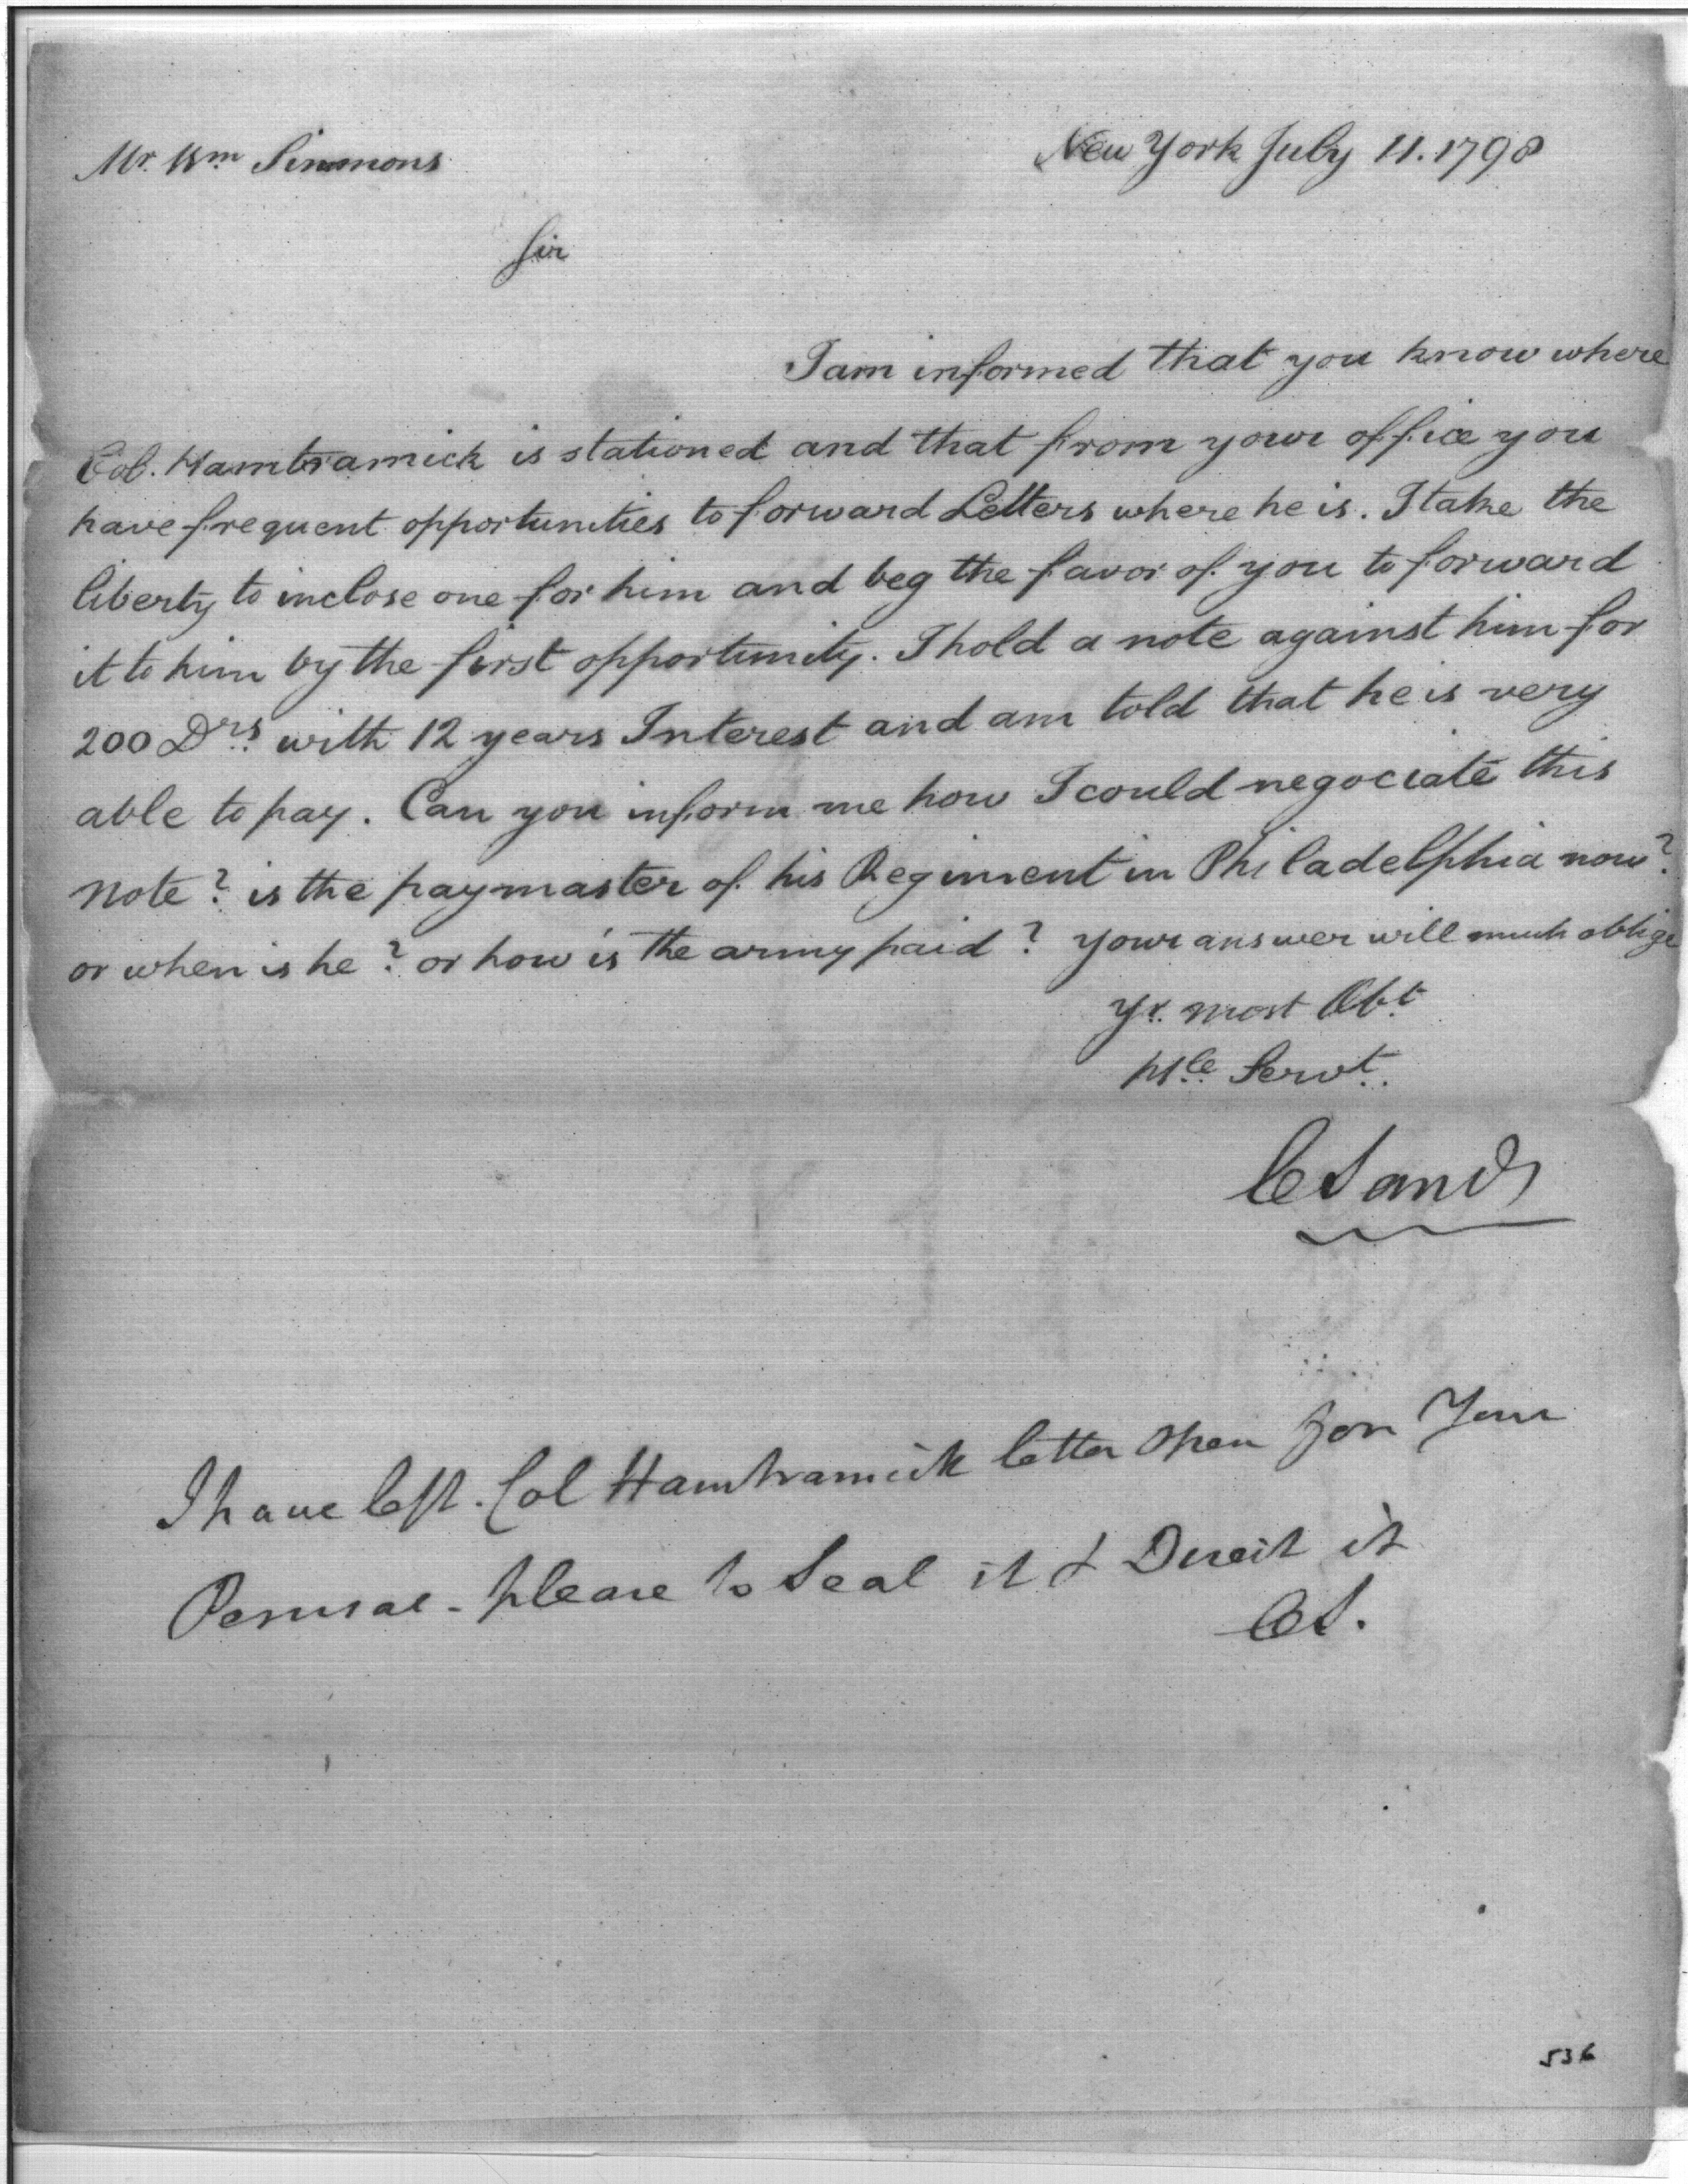 Mr. Wm Simmons
New York July 11. 1798
Sir
I am informed that you know where
Col. Hamtramick is stationed and that from your office you
have frequent opportunities to forward Letters where he is. I take the
liberty to inclose one for him and beg the favor of you to forward
it to him by the first opportunity. I hold a note against him for
200 Drs. with 12 years Interest and am told that he is very
able to pay. Can you inform me how I could negociate this
note? is the paymaster of his Regiment in Philadelphia now?
or when is he? or how is the army paid? your answer will much oblige
Yr. most Obt.
Hle Servt.
C Sands
I have left Col Hamtramick letter open for Your
Perusal - please to Seal it & Direct it
CS.
536